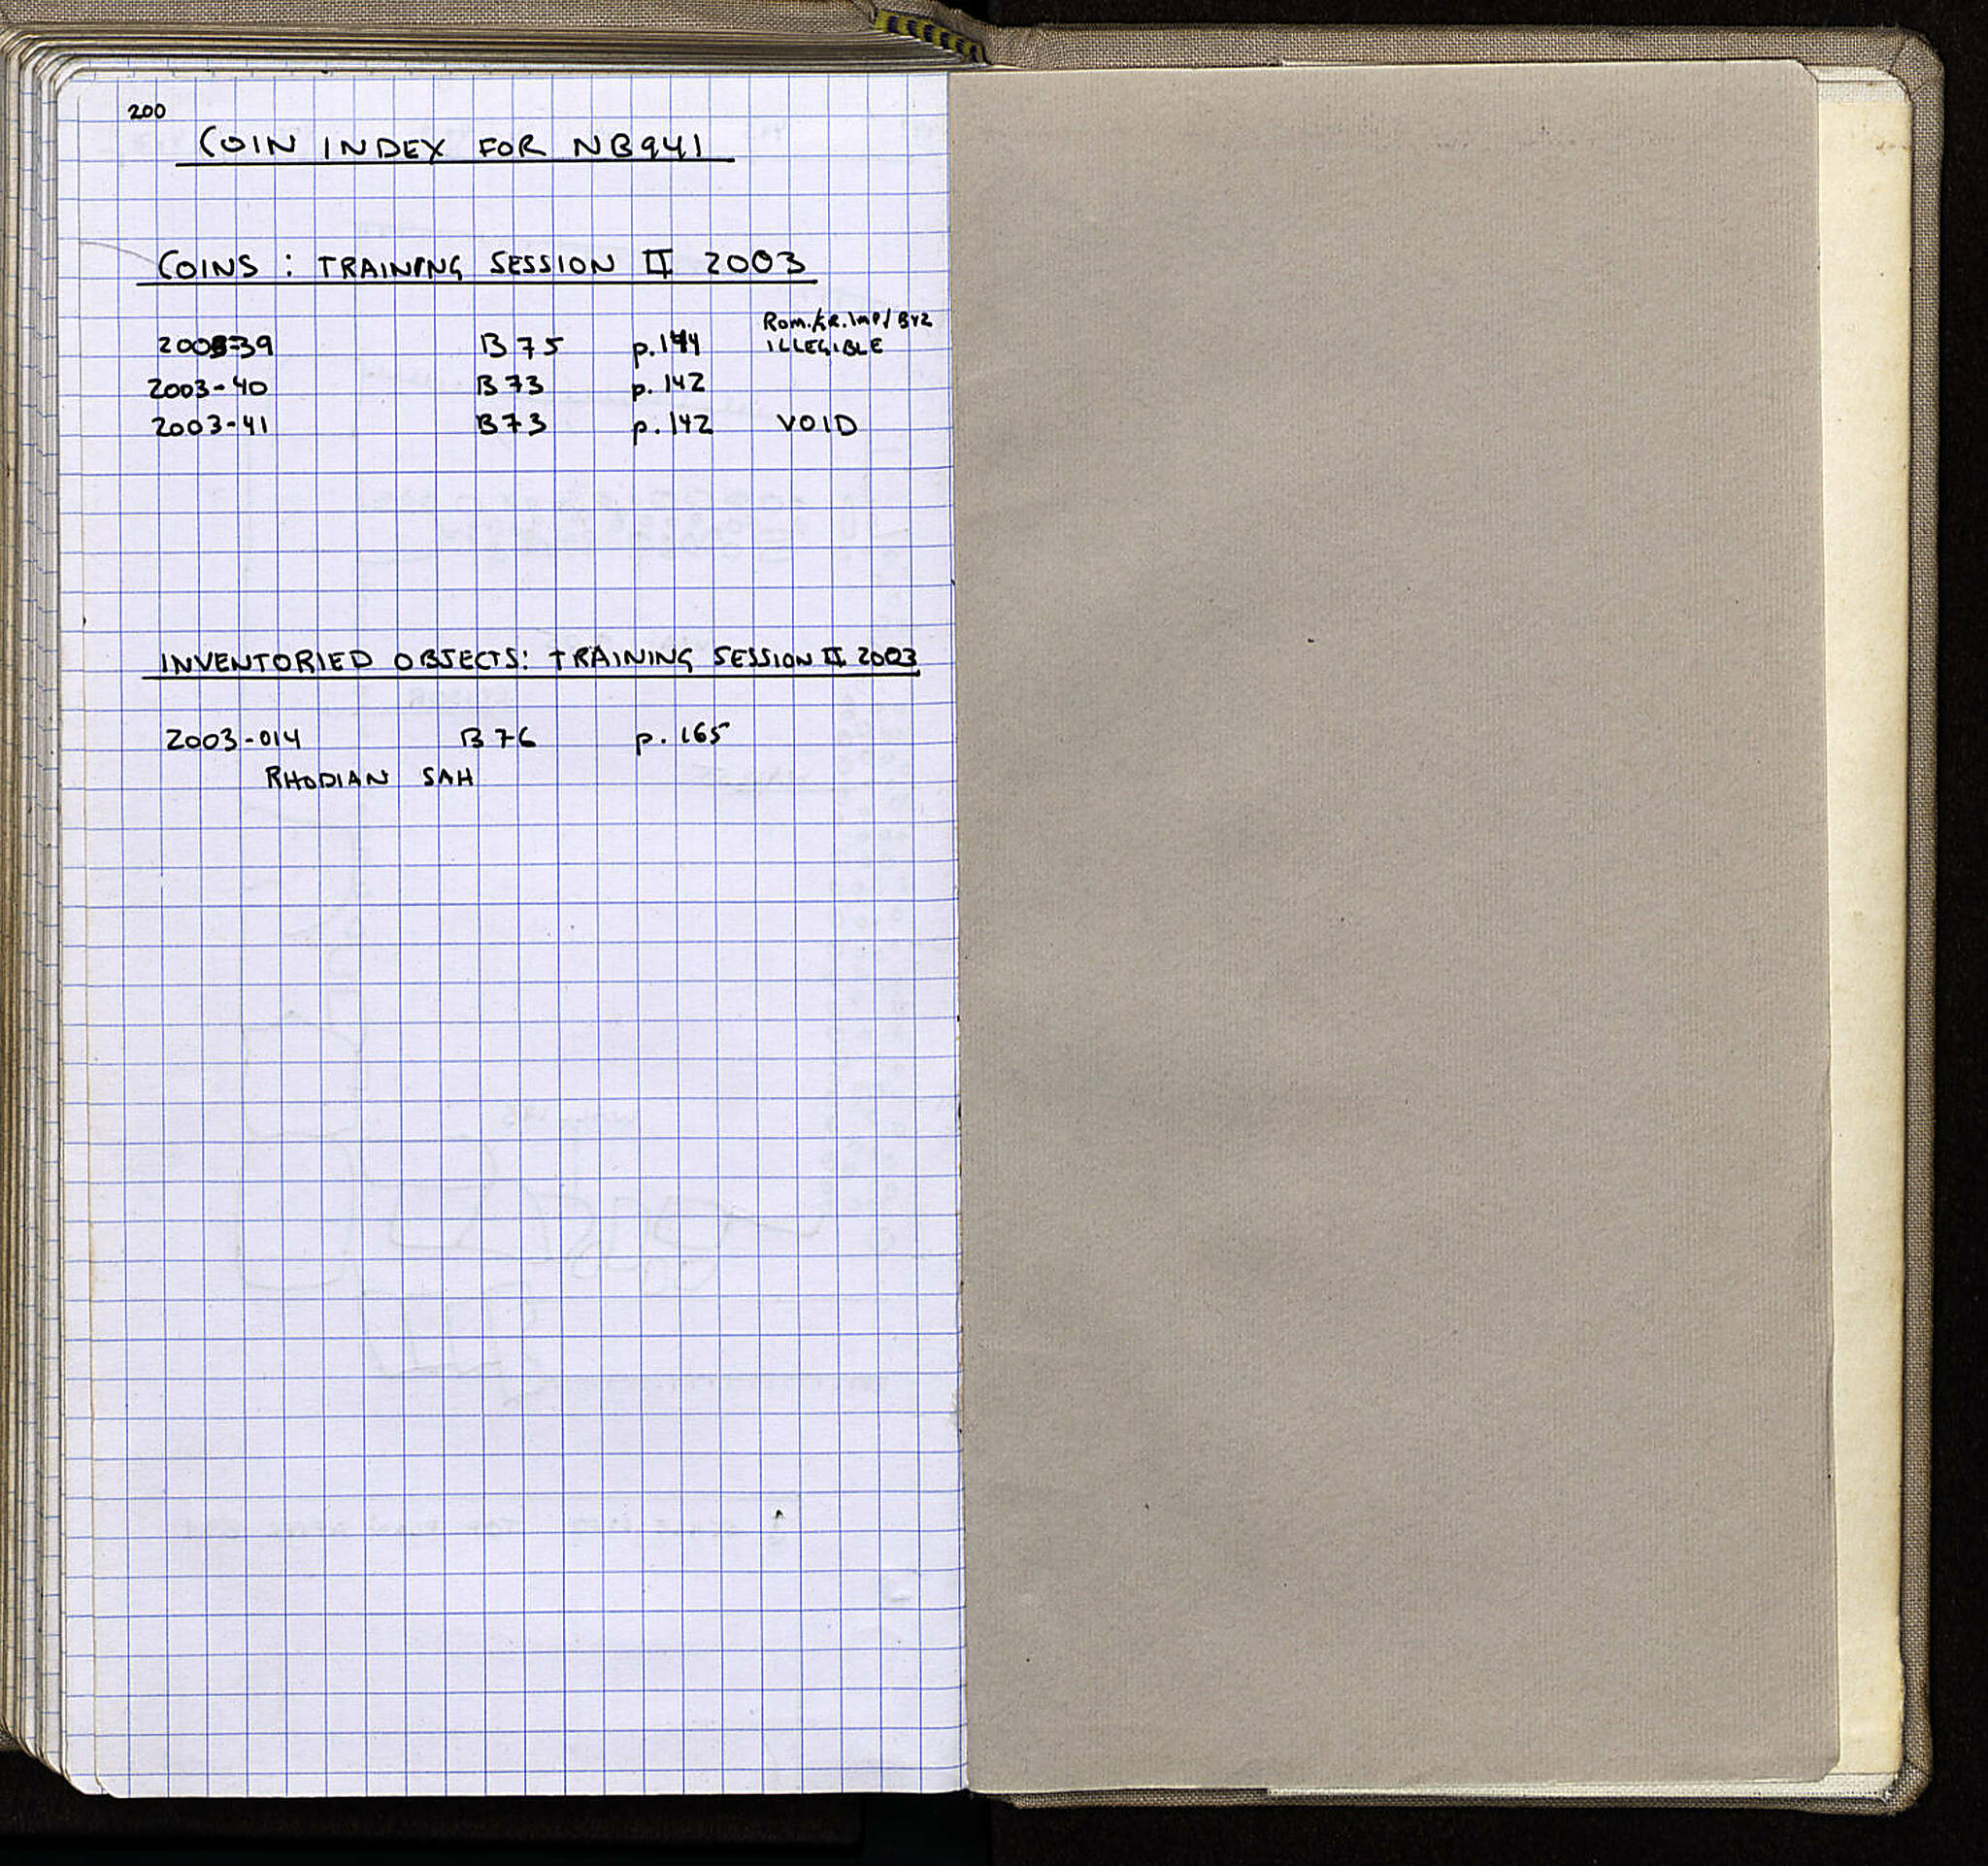 200
COIN INDEX FOR NB941
COINS : TRAINING SESSION II 2003
Rom./
2003-39 B 75 p.144 ILLEGIBLE
2003-40 B 73 p. 142
2003-41 B 73 p. 142 VOID
INVENTORIED OBJECTS: TRAINING SESSION II 2003
2003-014 B 76 p. 165
RHODIAN SAH